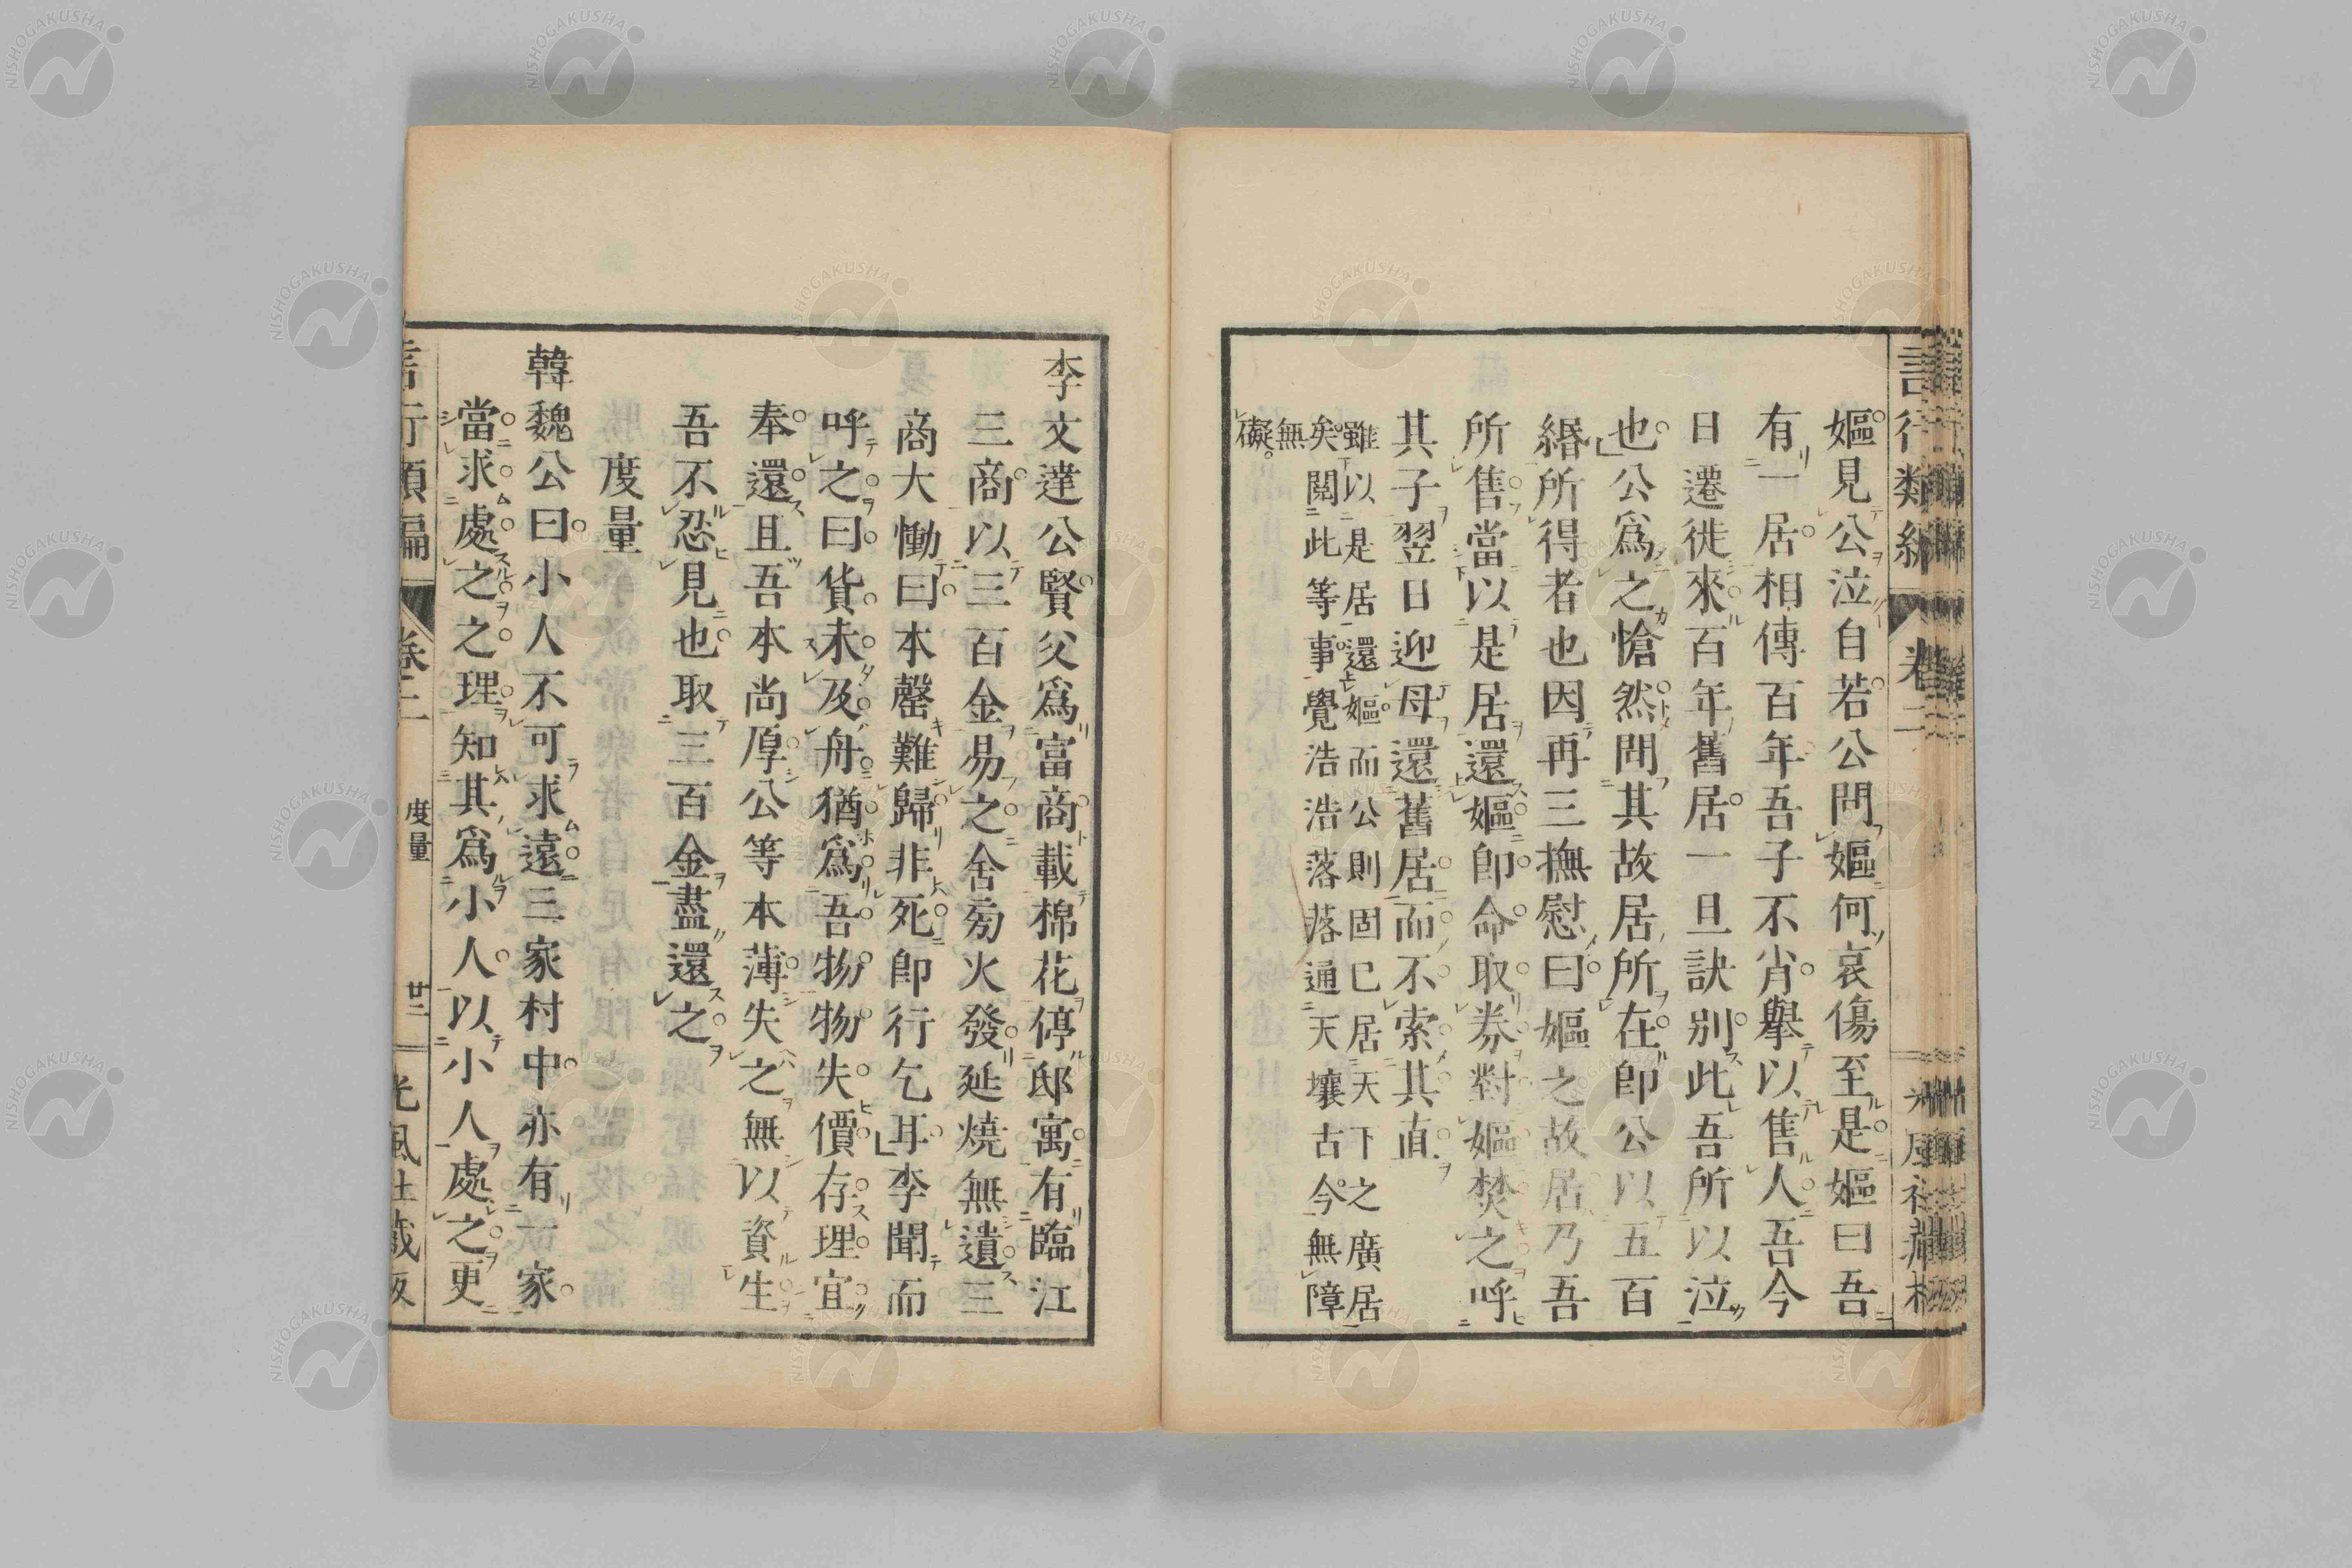 言行類編 卷二
嫗見公泣自若公問嫗何哀傷至是嫗曰吾
有一居相傳百年吾子不肖舉以售人吾今
日遷徙來百年舊居一旦訣別此吾所以泣
也公爲之愴然問其故居所在卽公以五百
緡所得者也因再三撫慰曰嫗之故居乃吾
所售當以是居還嫗卽命取券對嫗焚之呼
其子翌日迎母還舊居而不索其直
雖以是居還嫗而公則固已居天下之廣居
矣閱此等事覺浩浩落落通天壤古今無障
無
礙
李文達公賢父爲富商載棉花停邸寓有臨江
三商以三百金易之舍旁火發延燒無遺三
商大慟曰本罄難歸非死卽行乞耳李聞而
呼之曰貨未及舟猶爲吾物物失價存理宜
奉還且吾本尚厚公等本薄失之無以資生
吾不忍見也取三百金盡還之
度量
韓魏公曰小人不可求遠三家村中亦有一家
當求處之之理知其爲小人以小人處之更
言行類編 卷二 度量 廿二 光風社藏版
NISHOGAKUSHA